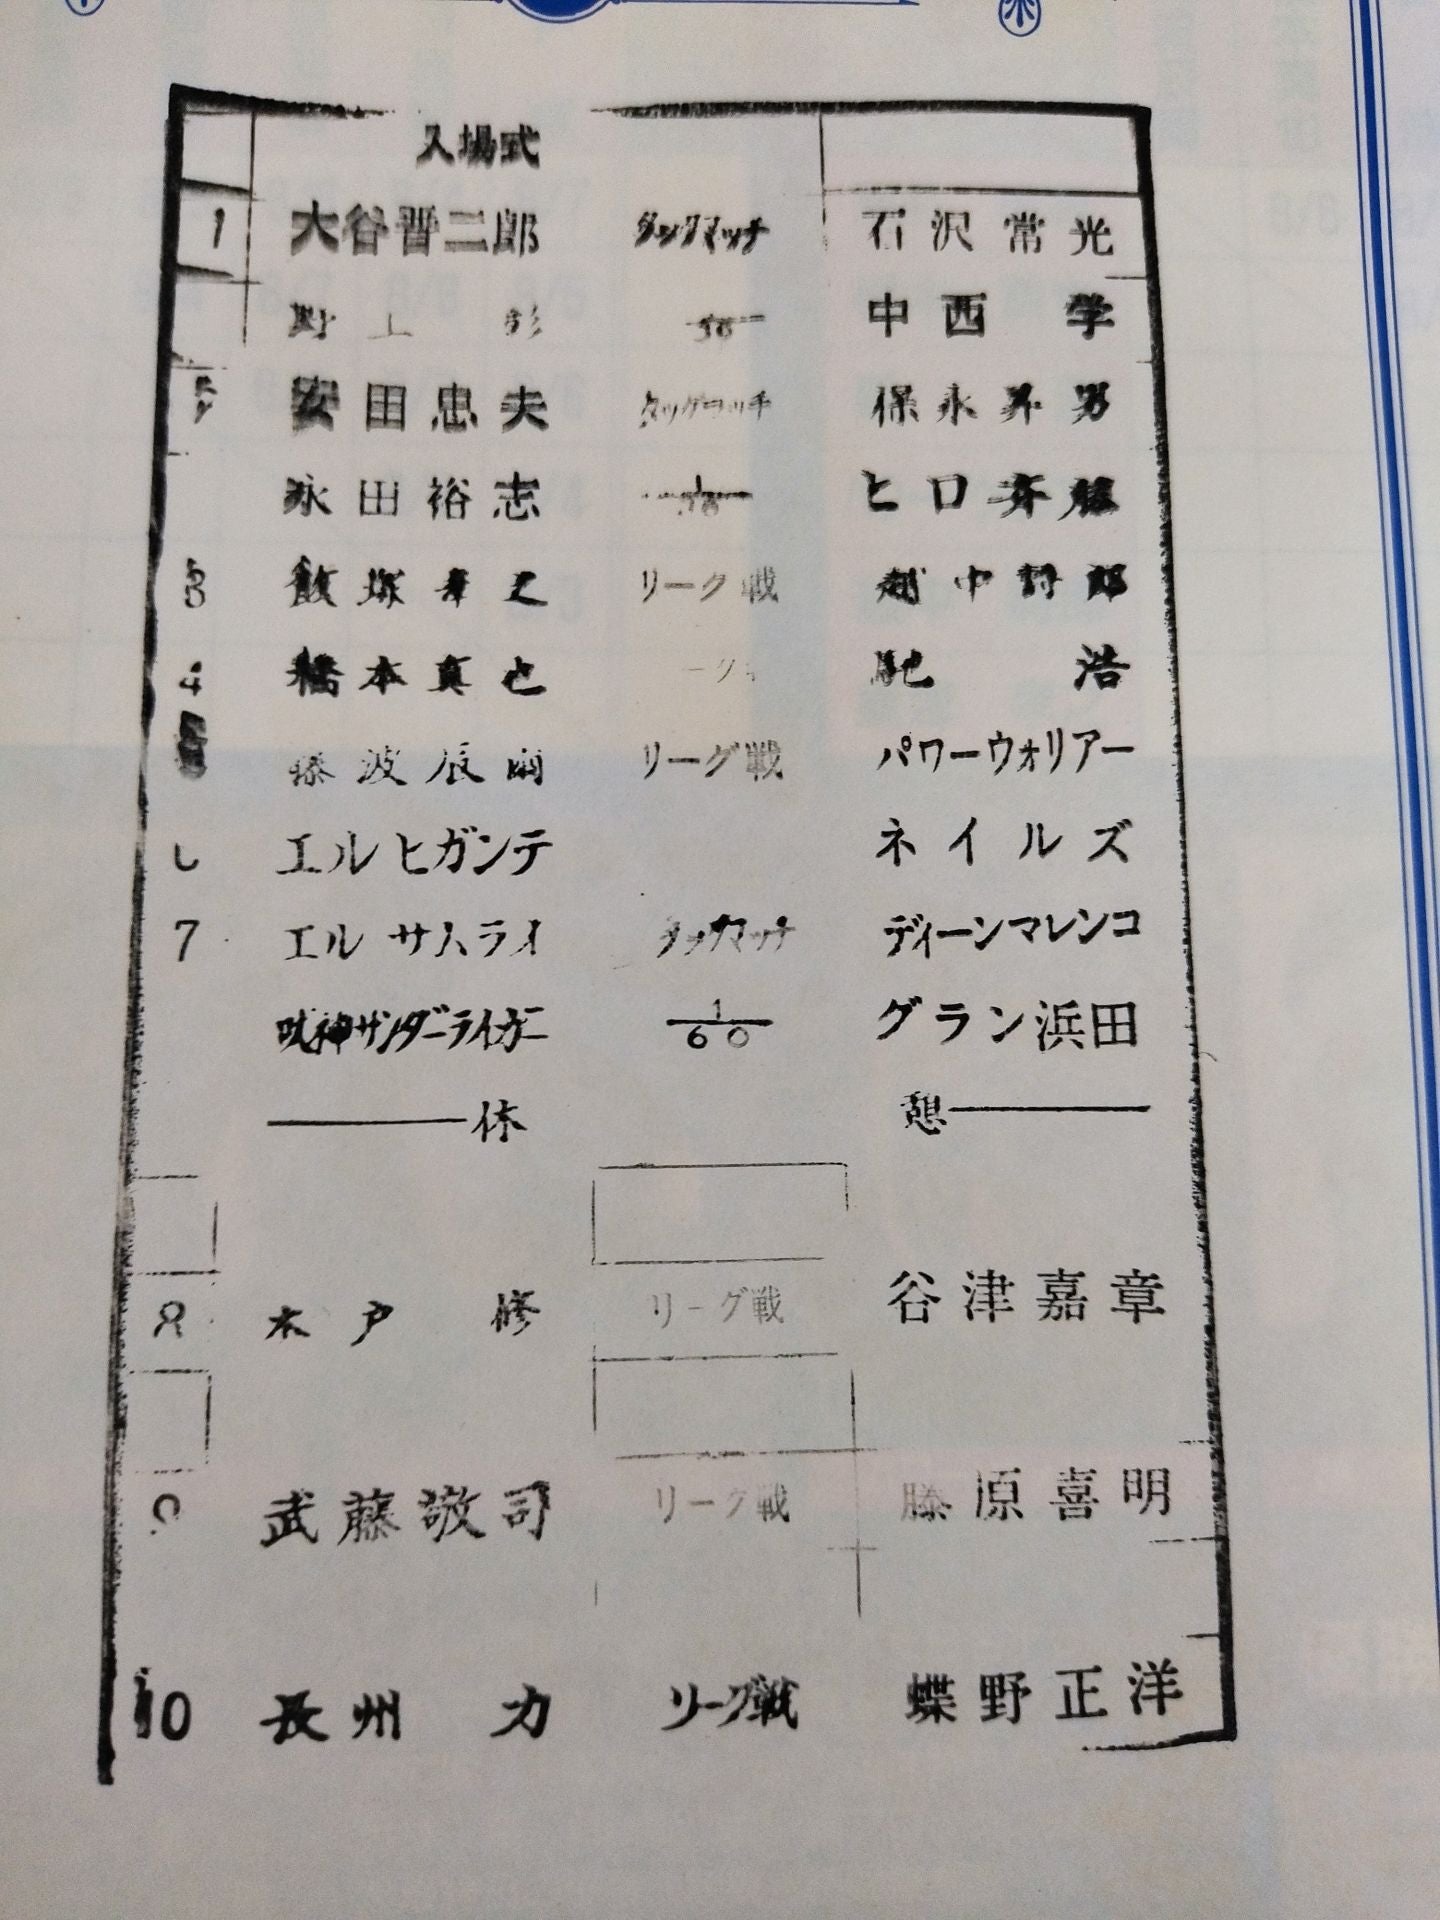 入場式
1 大谷晋二郎 タッグマッチ 石沢常光
野上 彰 中西 学
安田忠夫 タッグマッチ 保永昇男
永田裕志 ヒロ斉藤
3 飯塚孝之 リーグ戦 越中詩郎
4 橋本真也 ーグ 馳 浩
藤波辰爾 リーグ戦 パワーウォリアー
エルヒガンテ ネイルズ
7 エルサムライ タッグマッチ ディーンマレンコ
獣神サンダーライガー 1/60 グラン浜田
休 憩
8 木戸 修 リーグ戦 谷津嘉章
9 武藤敬司 リーグ戦 藤原喜明
10 長州 力 リーグ戦 蝶野正洋